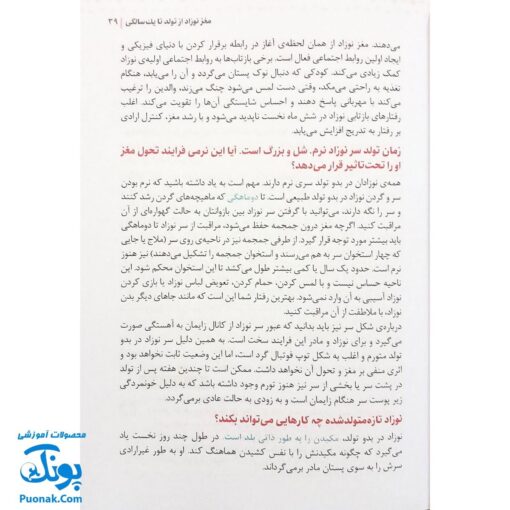 مغز نوزاد از تولد تا یک‌سالگی | ۳۹
می‌دهند. مغز نوزاد از همان لحظه‌ی آغاز در رابطه برقرار کردن با دنیای فیزیکی و
ایجاد اولین روابط اجتماعی فعال است. برخی بازتاب‌ها به روابط اجتماعی اولیه‌ی نوزاد
کمک زیادی می‌کند. کودکی که دنبال نوک پستان می‌گردد و آن را می‌یابد، هنگام
تغذیه به راحتی می‌مکد، وقتی دست لمس می‌شود چنگ می‌زند، والدین را ترغیب
می‌کند با مهربانی پاسخ دهند و احساس شایستگی آن‌ها را تقویت می‌کند. اغلب
رفتارهای بازتابی نوزاد در شش ماه نخست ناپدید می‌شود و با رشد مغز، کنترل ارادی
بر رفتار به تدریج افزایش می‌یابد.
زمان تولد سر نوزاد نرم، شل و بزرگ است. آیا این نرمی فرایند تحول مغز
او را تحت‌تاثیر قرار می‌دهد؟
همه‌ی نوزادان در بدو تولد سری نرم دارند. مهم است به یاد داشته باشید که نرم بودن
سر و گردن نوزاد در بدو تولد طبیعی است. تا دوماهگی که ماهیچه‌های گردن رشد کنند
و سر را نگه دارند، می‌توانید با گرفتن سر نوزاد بین بازوانتان به حالت گهواره‌ای از آن
مراقبت کنید. اگرچه مغز درون جمجمه حفظ می‌شود، مراقبت از سر نوزاد تا دوماهگی
باید بیشتر مورد توجه قرار گیرد. از طرفی جمجمه نیز در ناحیه‌ی روی سر (ملاج یا جایی
که چهار استخوان سر به هم می‌رسند و استخوان جمجمه را تشکیل می‌دهند) نیز هنوز
نرم است. حدود یک سال یا کمی بیشتر طول می‌کشد تا این استخوان محکم شود. این
ناحیه حساس نیست و با لمس کردن، حمام کردن، تعویض لباس نوزاد یا بازی کردن
نوزاد آسیبی به آن وارد نمی‌شود. بهترین رفتار شما این است که مانند جاهای دیگر بدن
نوزاد، با ملاطفت از آن مراقبت کنید.
درباره‌ی شکل سر نیز باید بدانید که عبور سر نوزاد از کانال زایمان به آهستگی صورت
می‌گیرد و برای نوزاد و مادر این فرایند سخت است. به همین دلیل سر نوزاد در بدو
تولد متورم و اغلب به شکل توپ فوتبال گرد است، اما این وضعیت ثابت نخواهد بود و
اثری منفی بر مغز و تحول آن نخواهد داشت. ممکن است تا چندین هفته پس از تولد
در پشت سر یا بخشی از سر نیز هنوز تورم وجود داشته باشد که به دلیل خونمردگی
زیر پوست سر هنگام زایمان است و به زودی به حالت عادی برمی‌گردد.
نوزاد تازه‌متولدشده چه کارهایی می‌تواند بکند؟
نوزاد در بدو تولد، مکیدن را به طور ذاتی بلد است. در طول چند روز نخست یاد
می‌گیرد که چگونه مکیدنش را با نفس کشیدن هماهنگ کند. او به طور غیرارادی
سرش را به سوی پستان مادر برمی‌گرداند.
محصولات آموزشی
پونک
Puonak.Com